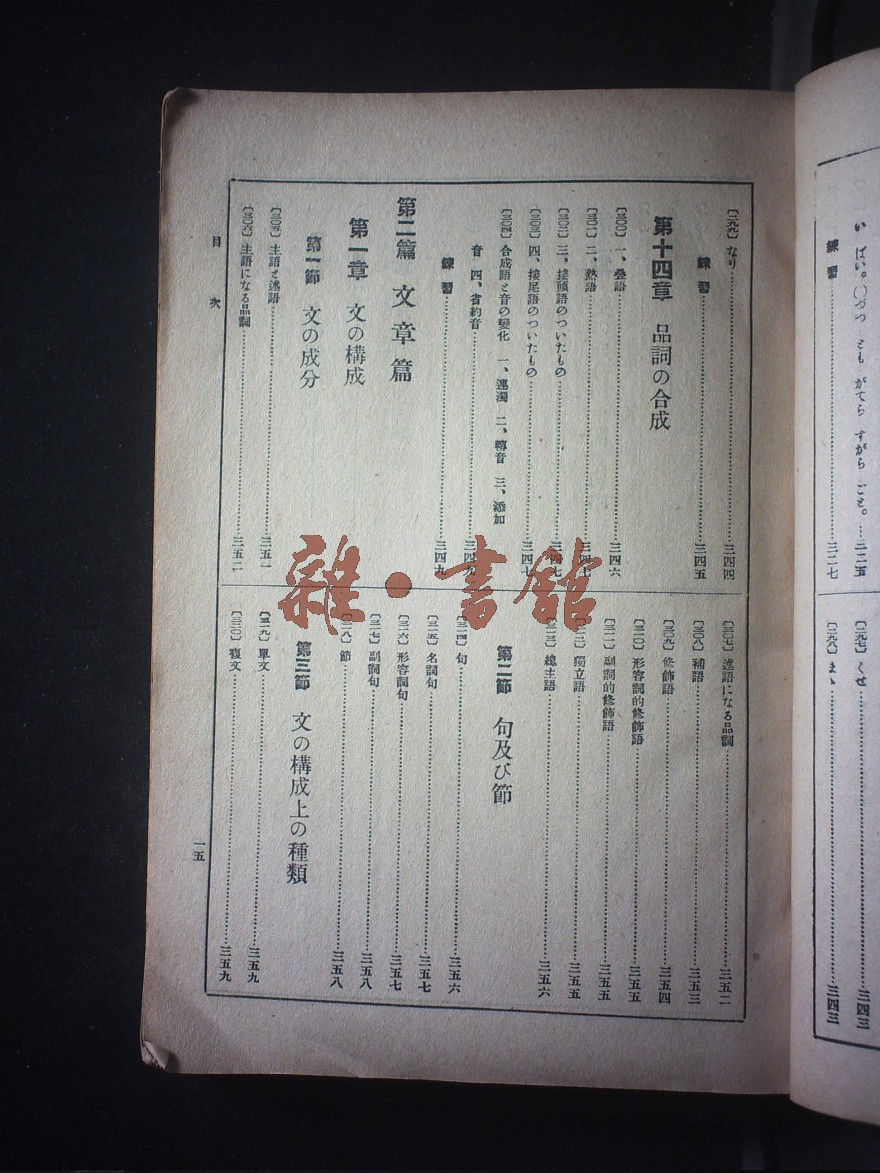 い ばい。 づつ とも がてら すがら ごと。…三二五
練習…三二七
〔二九七〕 くせ…三四三
…三四三
〔二九九〕 なり…三四四
練習…三四五
第十四章 品詞の合成
〔三〇〇〕 一、疊語…三四六
〔三〇一〕 二、熟語…三四七
〔三〇二〕 三、接頭語のついたもの…三四七
〔三〇三〕 四、接尾語のついたもの…三四七
〔三〇四〕 合成語と音の變化 一、連濁 二、轉音 三、添加
音 四、省約音…三四九
練習…三四九
第二篇 文章篇
第一章 文の構成
第一節 文の成分
〔三〇五〕 主語と述語…三五一
〔三〇六〕 主語になる品詞…三五二
〔三〇七〕 述語になる品詞…三五二
〔三〇八〕 補語…三五三
〔三〇九〕 修飾語…三五四
〔三一〇〕 形容詞的修飾語…三五五
〔三一一〕 副詞的修飾語…三五五
〔三一二〕 獨立語…三五五
〔三一三〕 總主語…三五六
第二節 句及び節
〔三一四〕 句…三五六
〔三一五〕 名詞句…三五七
〔三一六〕 形容詞句…三五七
〔三一七〕 副詞句…三五八
〔三一八〕 節…三五八
第三節 文の構成上の種類
〔三一九〕 單文…三五九
〔三二〇〕 複文…三五九
目次
一五
雜·書館